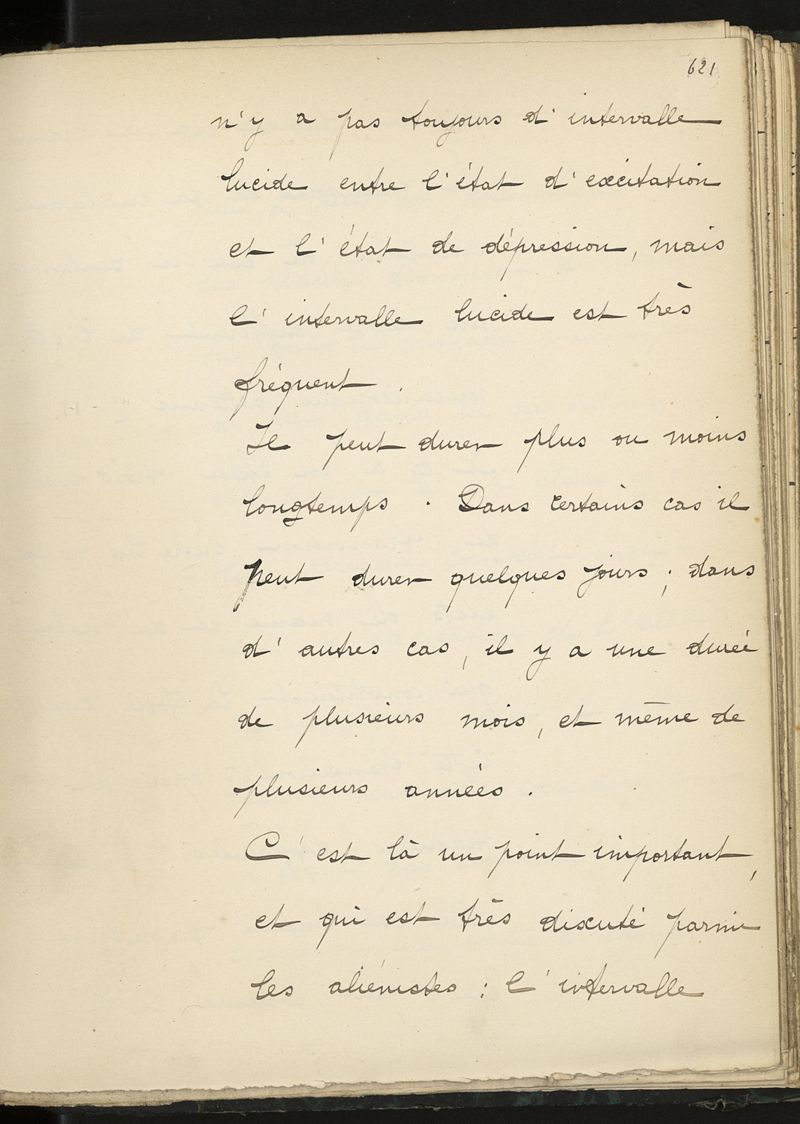 621
n'y a pas toujours d'intervalle
lucide entre l'état d'excitation
et l'état de dépression, mais
l'intervalle lucide est très
fréquent.
Il peut durer plus ou moins
longtemps. Dans certains cas il
peut durer quelques jours ; dans
d'autres cas, il y a une durée
de plusieurs mois, et même de
plusieurs années.
C'est là un point important,
et qui est très discuté parmi
les aliénistes : l'intervalle